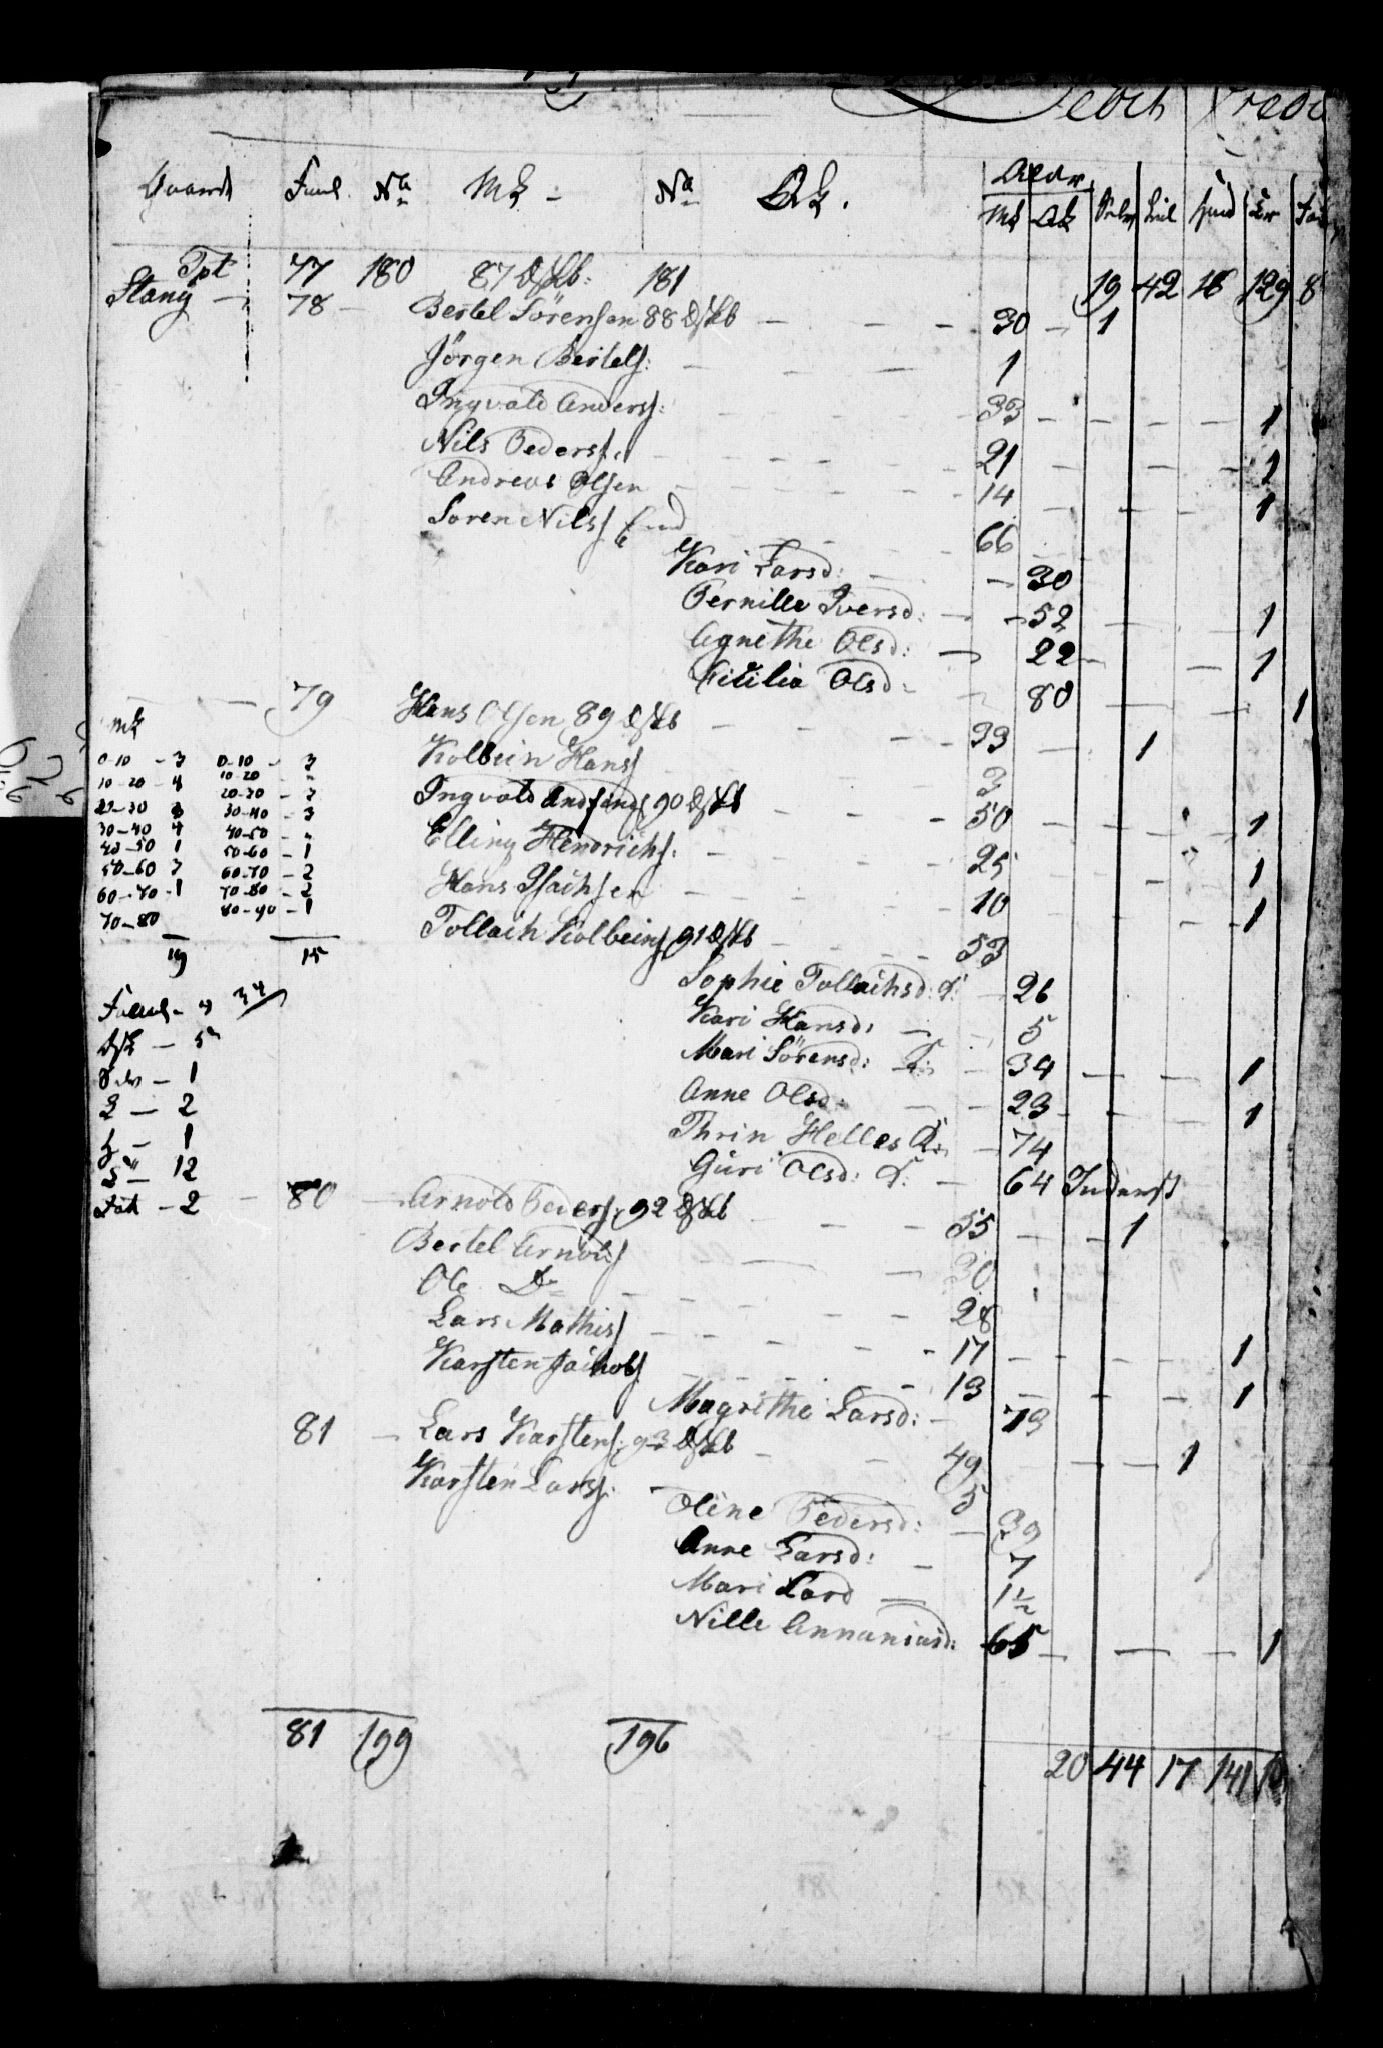 Debit Credi
Gaard Famil. No Mk No Qk. Alder
Mk Qk Selv Leil Huus
Tpt 77 180 87 181 19 42 16 129 8
Stang 78 Bertel Sörensen 88 30 1
Jörgen Bertels: 1
Ingvald Anders: 33 1
Nils Peders: 21 1
Andreas Olsen 14 1
Soren Nils 66
Kari Larsd: 30
Pernille Iversd: 52 1
Agnethe Olsd: 22 1
Cicilia Olsd: 80 1
79 Hans Olsen 89 33 1
Kolbein Hans 3
Ingvald 90 50 1
Elling Hendrichs. 25 1
Hans Isachsen 10 1
Tollach Kolbeins 91 53
Sophie Tollachsd: 26
Kari Hansd: 5
Mari Sörensd: 34 1
Anne Olsd: 23 1
Thrin Helles D: 74
Guri Olsd: 64 Inderst
80 Arnold Peders 92 55 1
Bertel Arnolds 30
Ole Do 28
Lars Mathis 17 1
Karsten Jacobs 13 1
Magrithe Larsd: 73
81 Lars Karstens: 93 49 1
Karsten Lars: 5
Oline Pedersd: 39
Anne Larsd: 7
Mari Larsd 1½
Nille Annaniasd: 65 1
81 199 196 20 44 17 141 10
Mk
0-10 - 3 0-10 - 3
10-20 - 4 10-20 - "
20-30 3 20-30 - 3
30-40 4 30-40 - 3
40-50 1 40-50 - "
50-60 3 50-60 - 1
60-70 - 1 60-70 - 2
70-80 70-80 - 2
80-90 - 1
19 15
34
Famil - 4
5
Selv - 1
L - 2
H - 1
12
Fat - 2